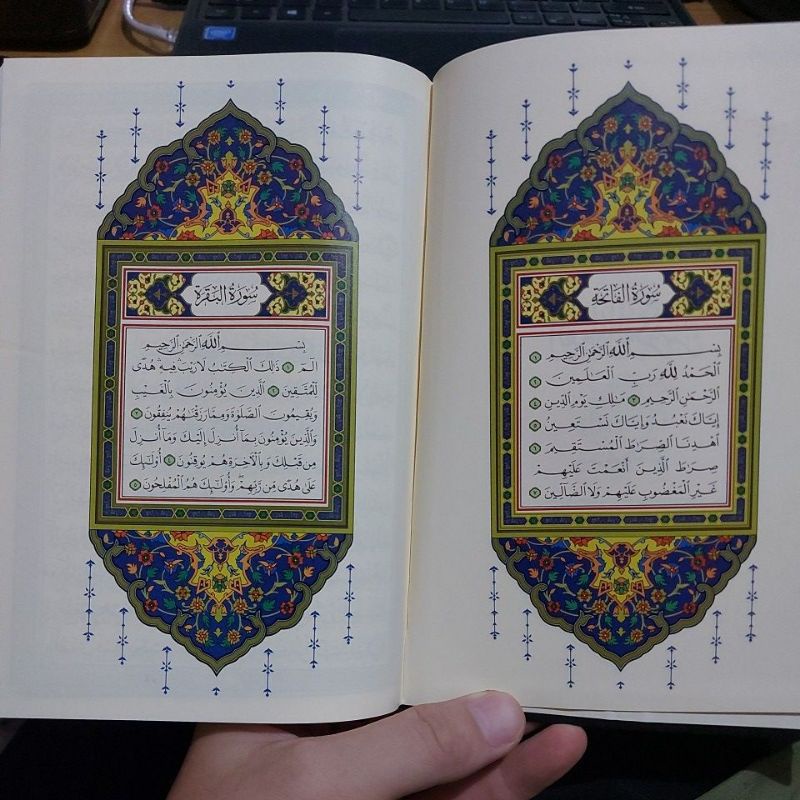 سُورَةُ الفَاتِحَةِ
بِسْمِ ٱللَّهِ ٱلرَّحْمَٰنِ ٱلرَّحِيمِ ١
ٱلْحَمْدُ لِلَّهِ رَبِّ ٱلْعَٰلَمِينَ ٢
ٱلرَّحْمَٰنِ ٱلرَّحِيمِ ٣ مَٰلِكِ يَوْمِ ٱلدِّينِ ٤
إِيَّاكَ نَعْبُدُ وَإِيَّاكَ نَسْتَعِينُ ٥
ٱهْدِنَا ٱلصِّرَٰطَ ٱلْمُسْتَقِيمَ ٦
صِرَٰطَ ٱلَّذِينَ أَنْعَمْتَ عَلَيْهِمْ
غَيْرِ ٱلْمَغْضُوبِ عَلَيْهِمْ وَلَا ٱلضَّآلِّينَ ٧
سُورَةُ البَقَرَةِ
بِسْمِ ٱللَّهِ ٱلرَّحْمَٰنِ ٱلرَّحِيمِ
الٓمٓ ١ ذَٰلِكَ ٱلْكِتَٰبُ لَا رَيْبَ ۛ فِيهِ ۛ هُدًى
لِّلْمُتَّقِينَ ٢ ٱلَّذِينَ يُؤْمِنُونَ بِٱلْغَيْبِ
وَيُقِيمُونَ ٱلصَّلَوٰةَ وَمِمَّا رَزَقْنَٰهُمْ يُنفِقُونَ ٣
وَٱلَّذِينَ يُؤْمِنُونَ بِمَآ أُنزِلَ إِلَيْكَ وَمَآ أُنزِلَ
مِن قَبْلِكَ وَبِٱلْءَاخِرَةِ هُمْ يُوقِنُونَ ٤ أُو۟لَٰٓئِكَ
عَلَىٰ هُدًى مِّن رَّبِّهِمْ ۖ وَأُو۟لَٰٓئِكَ هُمُ ٱلْمُفْلِحُونَ ٥